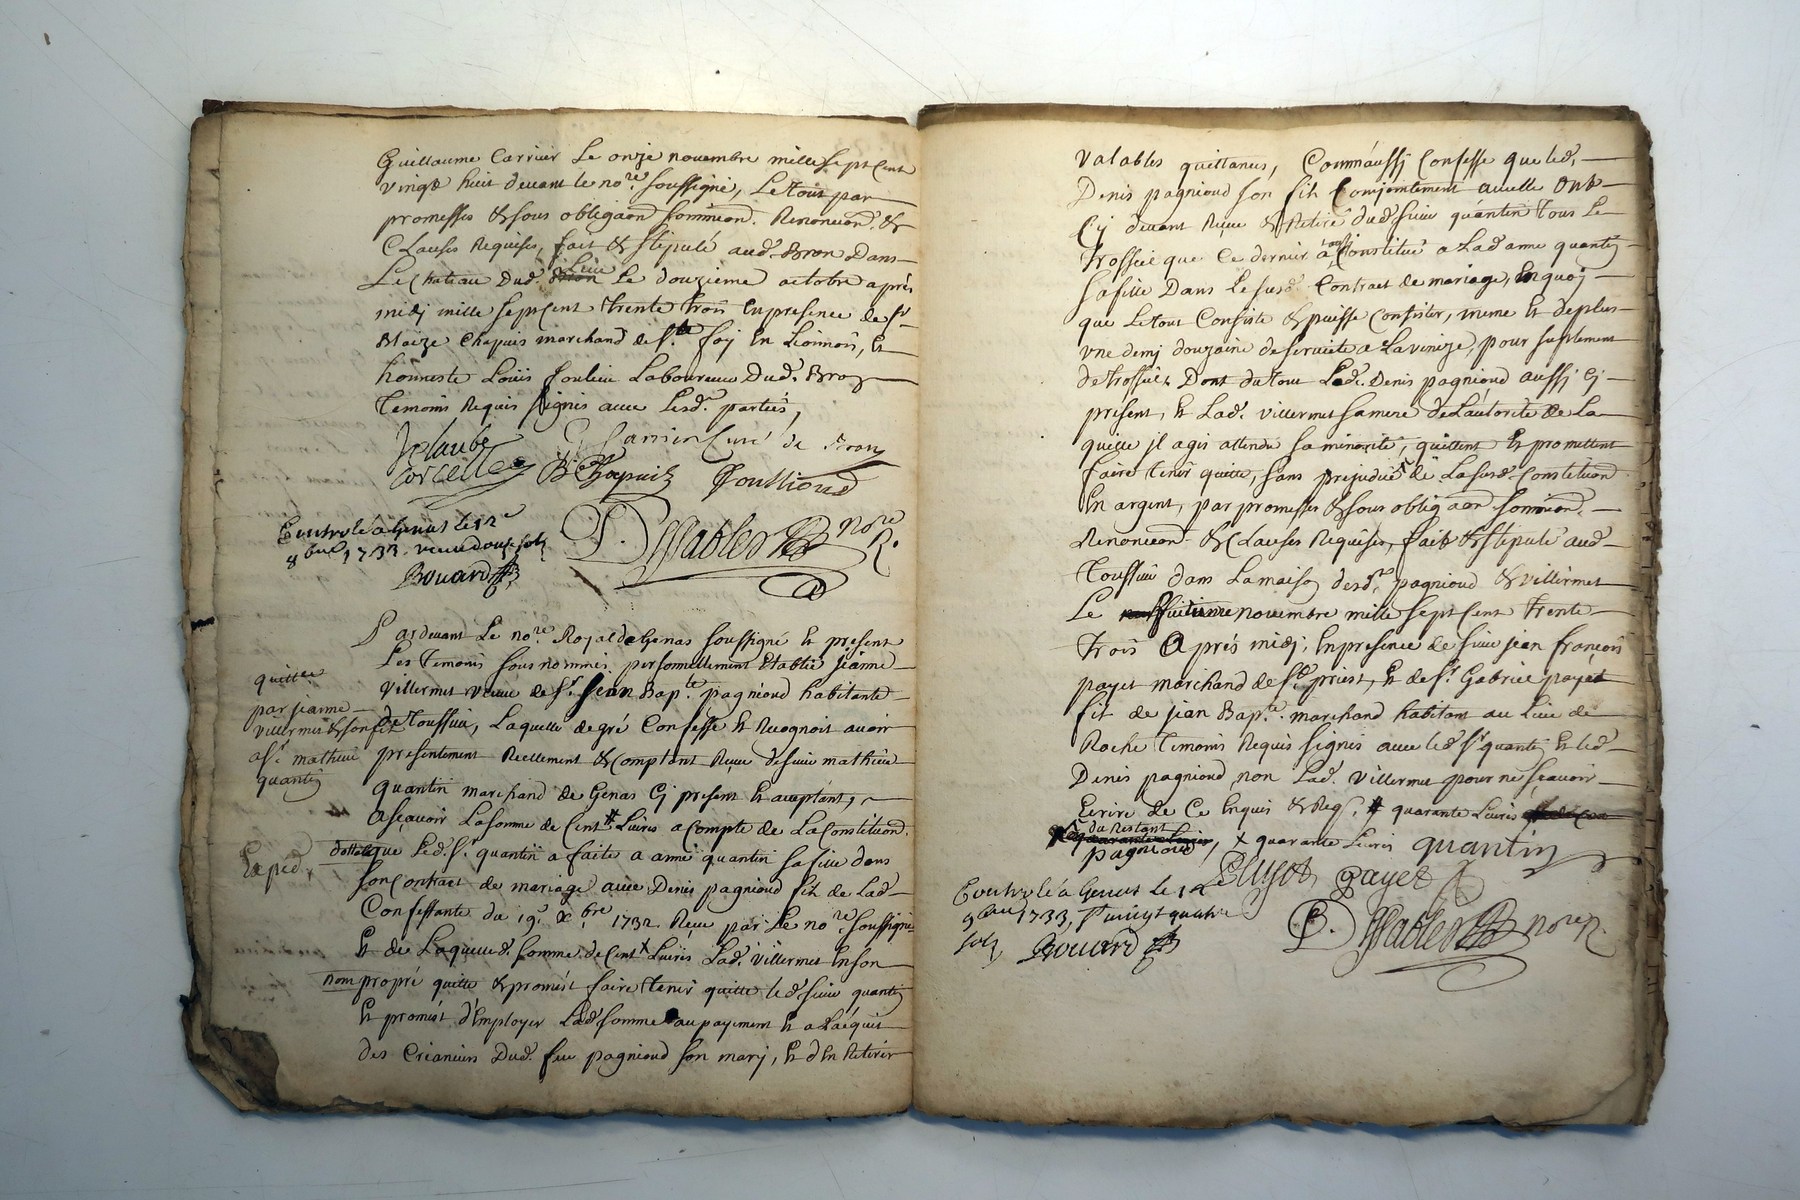 Guillaume Carrier Le onze novembre mille sept Cent
vingt huit devant le no.re soussigné, Le tout par
promesses & sous obligaon soumision. Renonciaon. &
Clauses Requises, fait & stipulé aud. Bron Dans
Le Chateau Dud. Lieu Le douzieme octobre apres
midy mille sept Cent trente trois en presence de Sr
Blaize Chapuis marchand de Ste foy En Lionnois, Et
honneste Loüis Jouliou Laboureur Dud. Bron
Temoins Requis signés avec Lesd. parties,
Delaube
Corcelles
Carrier Curé de Bron
B. Chapuis
D. Sablon no.re R.
Controlé a Genas le 12e
8bre 1733. Receu douze sols
Bouard
Pardevant Le no.re Royal de Genas soussigné Et present
Les Temoins sous nommés, personnellement Etablie jeanne
villermet veuve de Sr. Jean Bap.te pagnioud habitante
de Toussieu, Laquelle de gré Confesse Et Recognoit avoir
presentement Reellement & Comptant Reçue de sieur mathieu
quantin marchand de Genas Cy present Et acceptant,
asçavoir La somme de Cent # Livres a Compte de La Constituon.
dottale que Led. Sr. quantin a faite a anne quantin sa fille dans
son Contract de mariage avec Denis pagnioud fils de Lad.
Confessante du 19e xbre 1732 Reçu par Le no.re soussigné
Et de Laquelle d. somme de Cent x Livres Lad. villermet En son
nom propre quitte & promêt faire Tenir quitte led sieur quantin
Et promêt d'Employer Lad somme au payement Et a L'acquit
des Creanciers Dud. feu pagnioud son mary, Et d'En Retirer
quittce
par jeanne
villermet & son fils
a Sr. mathieu
quantin
Exped.
valables quittances, Comm'aussy Confesse que led.
Denis pagnioud son fils Conjointement avec elle Ont
Cy devant Reçu & Retiré dud. sieur quantin tous Le
trossel que Ce dernier a Constitué a Lad anne quantin
sa fille Dans Le susd. Contract de mariage, En quoy
que Le tout Consiste & puisse Consister, meme Et de plus
une demy douzaine de serviete a La venize, pour suplement
de trossel. Dont du tout Led. Denis pagnioud aussy Cy
present, Et Lad. villermet sa mere de L'autorité de La
quelle il agis attendu sa minorité, quittent Et promettent
faire tenir quitte, sans prejudice de La susd. Constituon
En argent, par promesses & sous obligaon soumision.
Renonciaon & Clauses Requises, fait & stipulé aud
Toussieu dans La maison desd. pagnioud & villermet
Le huitieme novembre mille sept Cent trente
trois Après midy, En presence de sieur jean françois
payet marchand de St. priest, Et de Sr. Gabriel payet
fils de jean Bap.te marchand habitant au Lieu de
Roche Temoins Requis signés avec led Sr quantin Et led
Denis pagnioud, non Lad. villermet pour ne sçavoir
Ecrire de Ce Enquis & Req. # quarante Livres
du Restant
pagnioud, x quarante Livres quantin
payet
D. Sablon no.re R.
Controlé a Genas le 14e
9bre 1733, R. vingt quatre
sols
Bouard